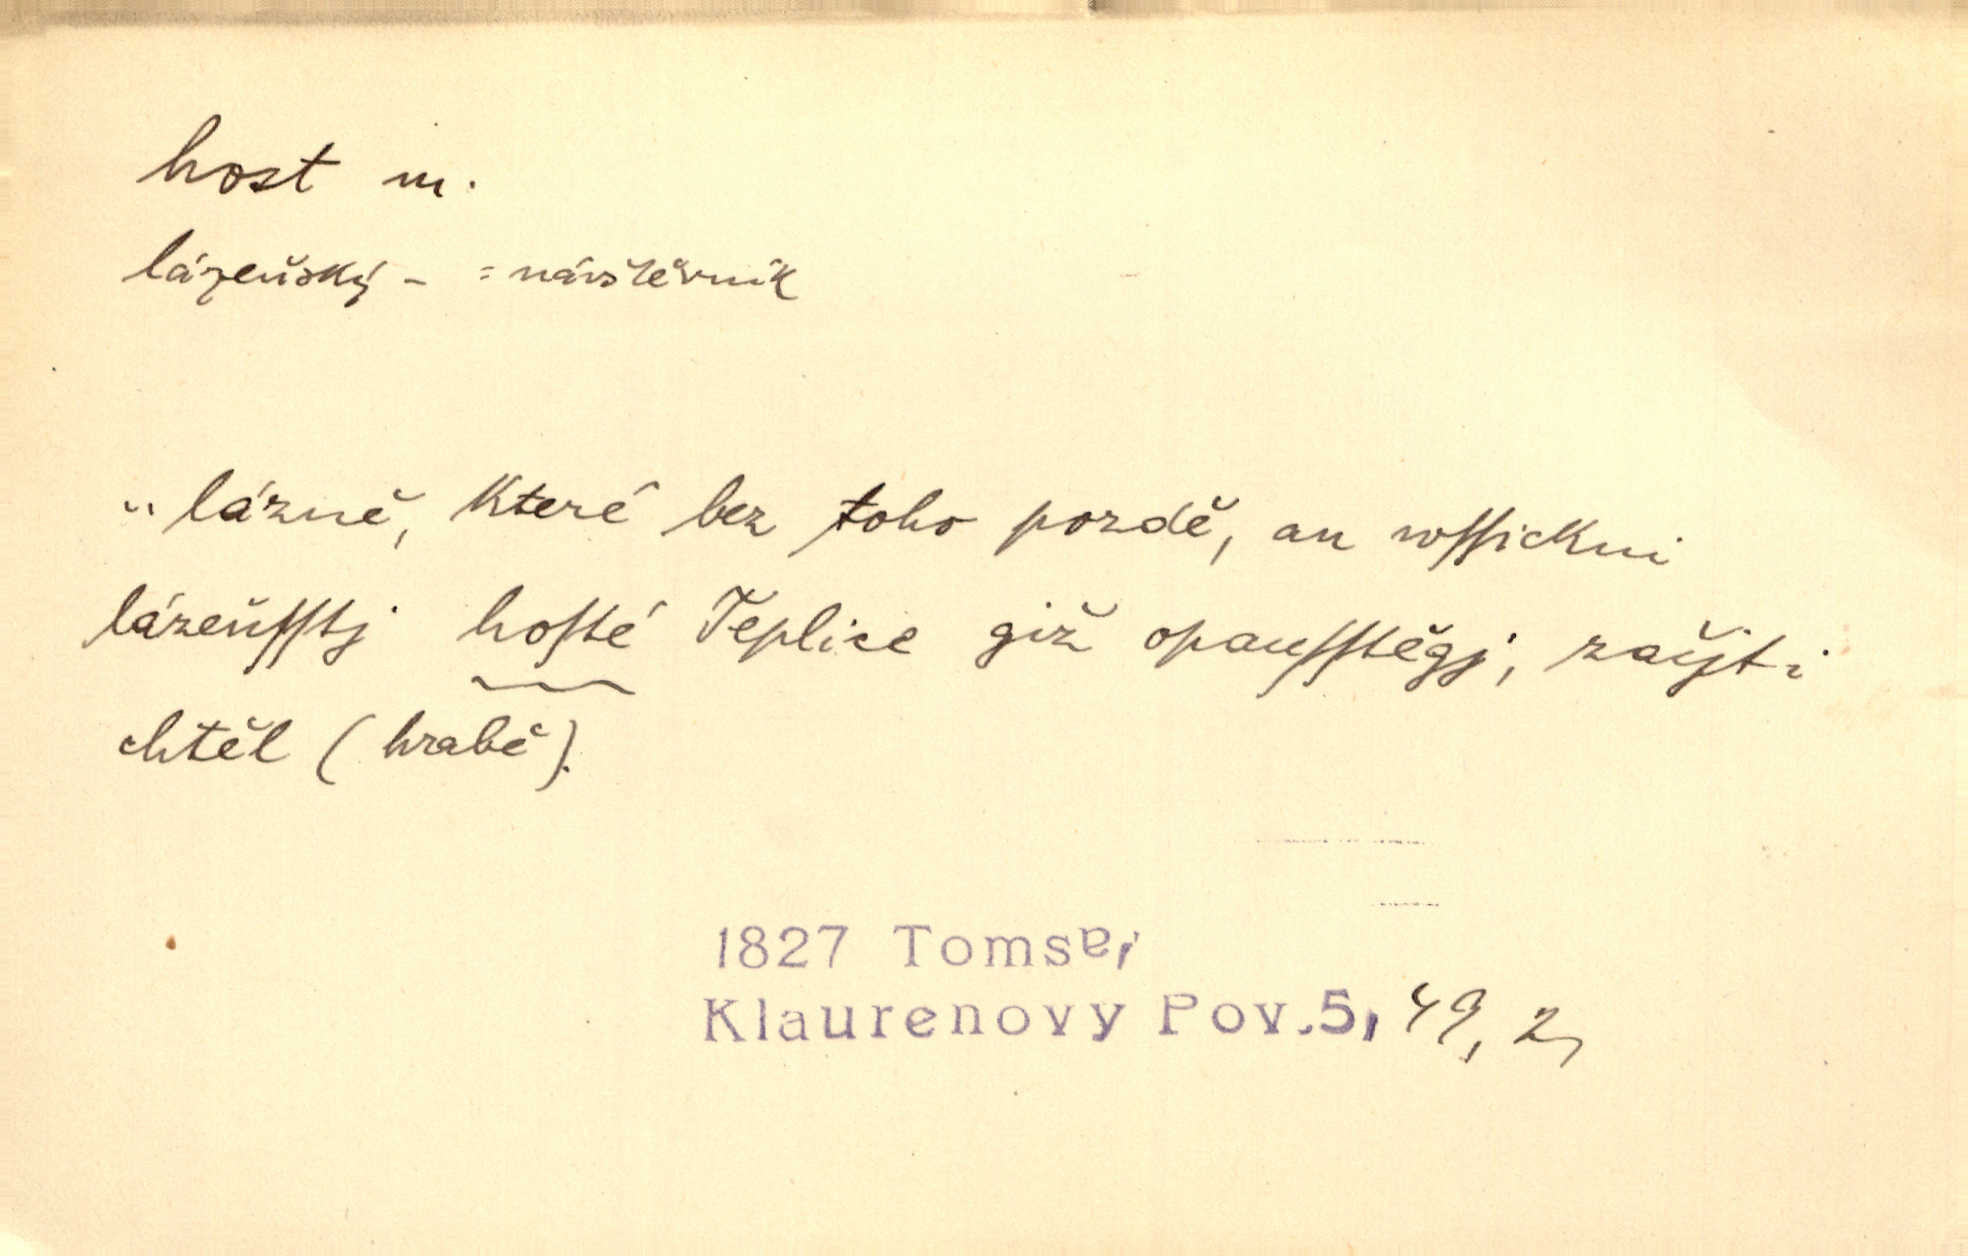 host m.
lázeňský - = návštěvník
„ lázně, které bez toho pozdě, an wssickni
lázeňsstj hosté Teplice giž opausstěgj, začjti
chtěl (hrabě).
1827 Tomsa,
Klaurenovy Pov.5, 49, 2,